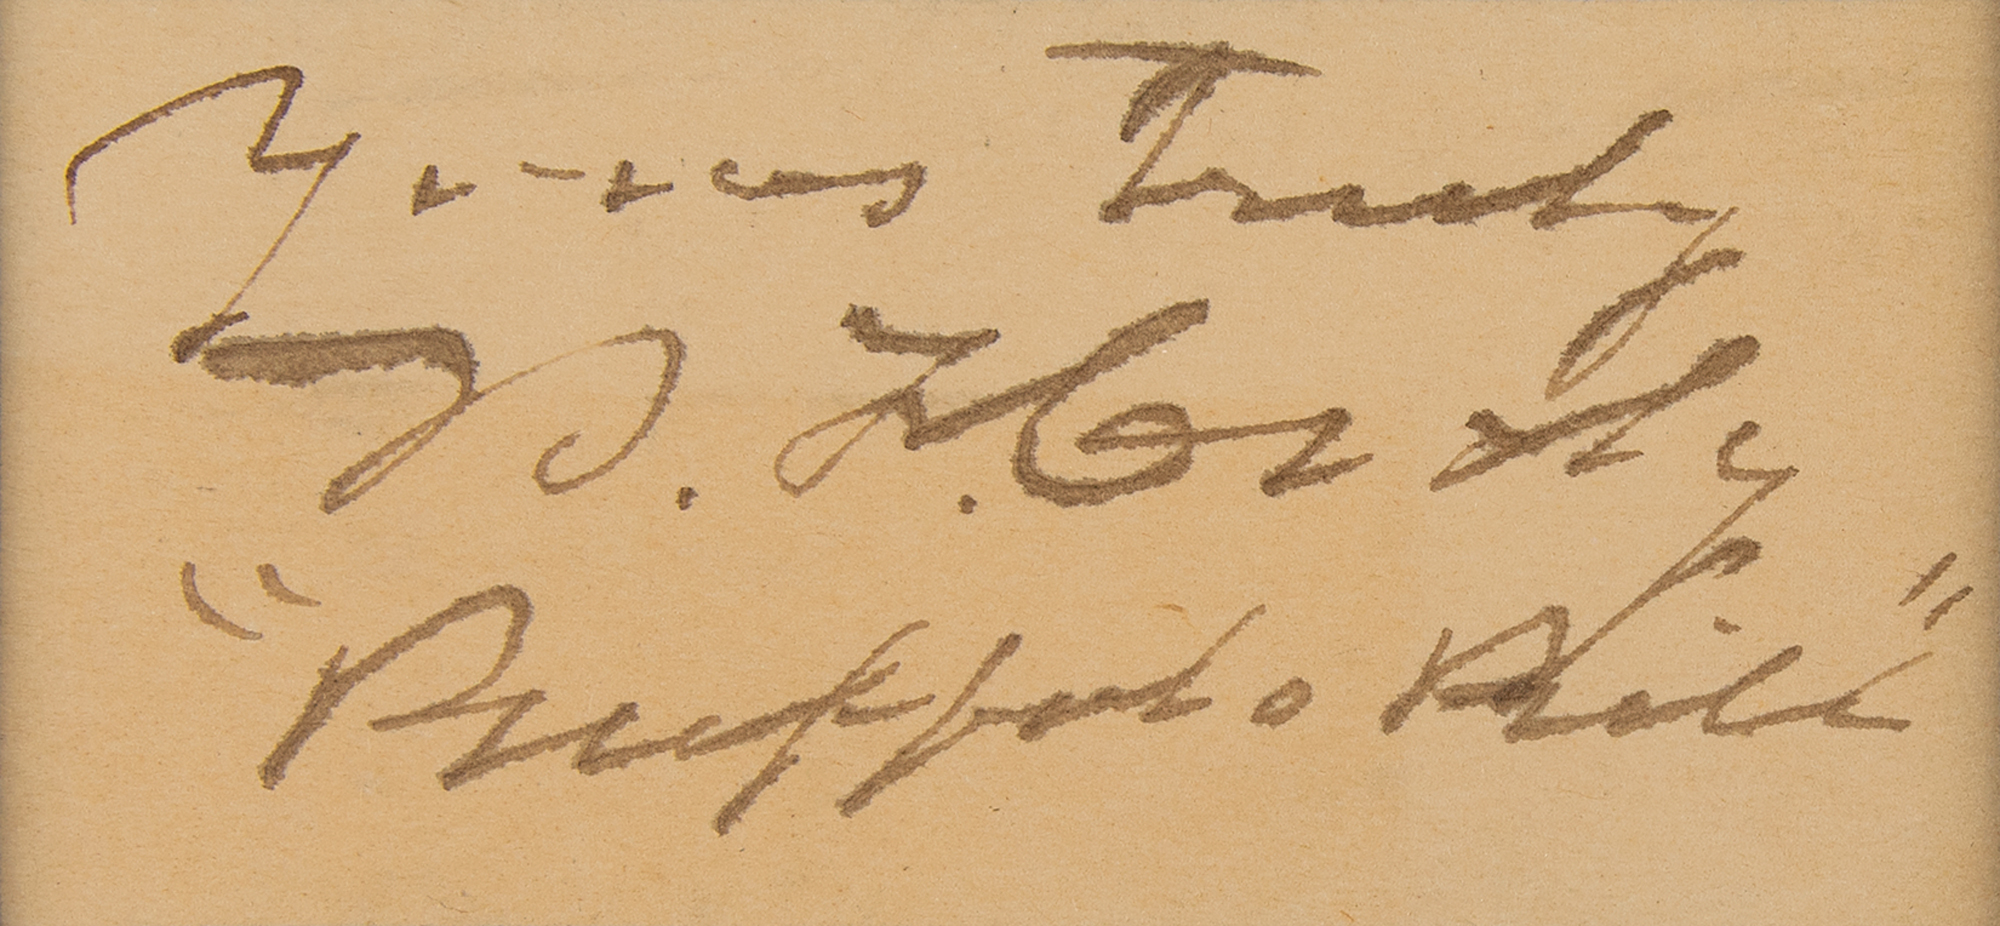 Yours Truly
W. F. Cody
"Buffalo Bill"